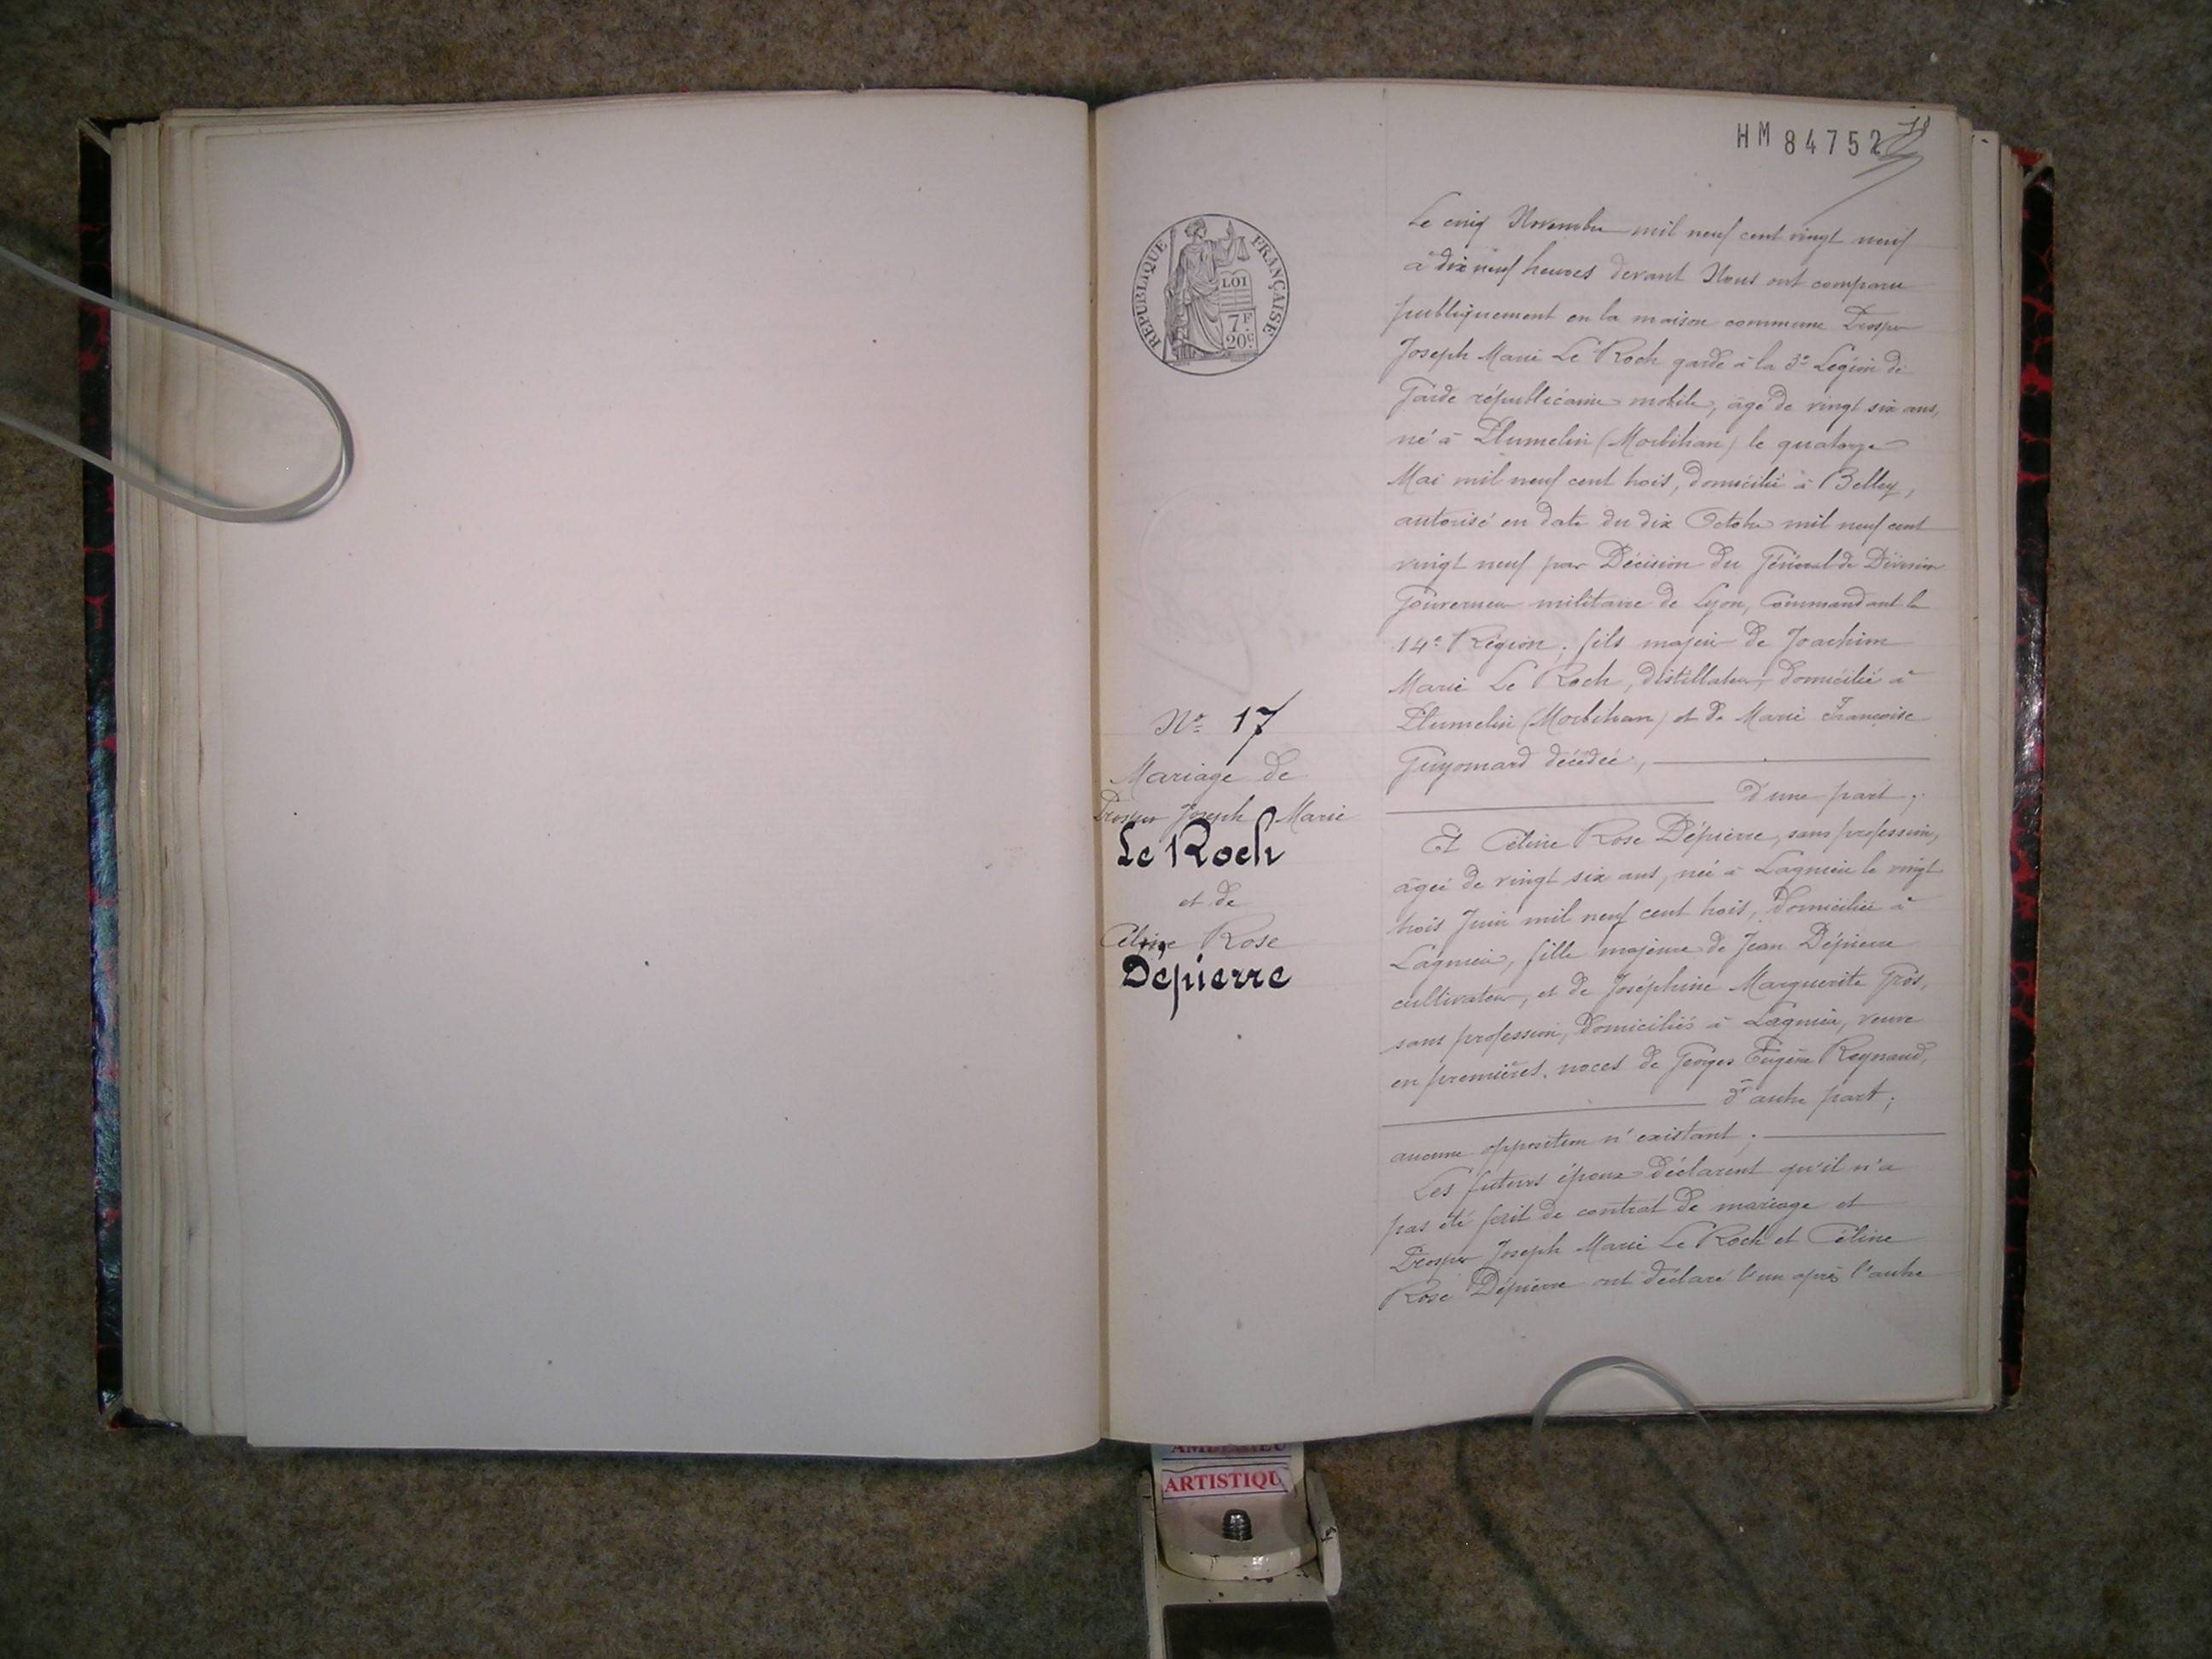 HM 84752
78
REPUBLIQUE FRANÇAISE
LOI
7F
20c
Nº 17
Mariage de
Prosper Joseph Marie
Le Roch
et de
Céline Rose
Dépierre
Le cinq Novembre mil neuf cent vingt neuf
à dix neuf heures devant Nous ont comparu
publiquement en la maison commune Prosper
Joseph Marie Le Roch garde à la 3e Légion de
Garde républicaine mobile, âgé de vingt six ans,
né à Plumelin (Morbihan) le quatorze
Mai mil neuf cent trois, domicilié à Belley,
autorisé en date du dix Octobre mil neuf cent
vingt neuf par Décision du Général de Division
Gouverneur militaire de Lyon, Commandant la
14e Région, fils majeur de Joachim
Marie Le Roch, distillateur, domicilié à
Plumelin (Morbihan) et de Marie Françoise
Guyomard décédée,
d'une part;
Et Céline Rose Dépierre, sans profession,
âgée de vingt six ans, née à Lagnieu le vingt
trois Juin mil neuf cent trois, domiciliée à
Lagnieu, fille majeure de Jean Dépierre
cultivateur, et de Joséphine Marguerite Gros,
sans profession, domiciliés à Lagnieu, veuve
en premières noces de Georges Eugène Reynaud,
d'autre part;
aucune opposition n'existant.
Les futurs époux déclarent qu'il n'a
pas été fait de contrat de mariage et
Prosper Joseph Marie Le Roch et Céline
Rose Dépierre ont déclaré l'un après l'autre
ARTISTIQU